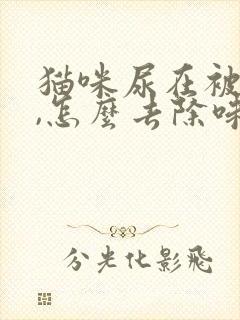 猫咪尿在被
,怎麼去除味
分光化影飛